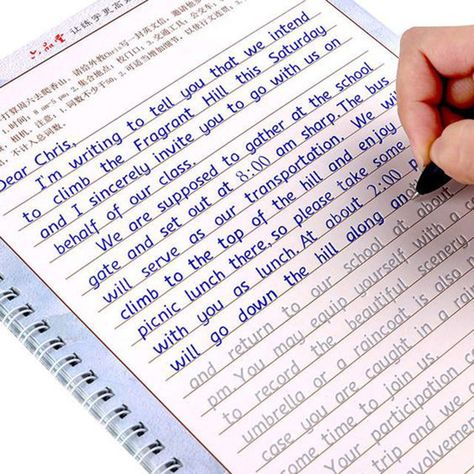 六品堂 让练字更高
打算周六去爬香山,请给外教Chris写一封英文信,邀请他
1.时间:8 am-5 pm;2.集合地点:校门口;3.交通工具:公交车
注意:1.词数不少于 2.可适当增加细节,以使行文连贯
不计入总词数
Dear Chris,
I'm writing to tell you that we intend
to climb the Fragrant Hill this Saturday
and I sincerely invite you to go with us on
behalf of our class.
We are supposed to gather at the school
gate and set out at 8:00 am sharp. The bus
will serve as our transportation. We
climb to the top of the hill and enjoy
picnic lunch there, so please take some
with you as lunch. At about 2:00 p
will go down the hill along an
and return to our school at about
pm. You may equip yourself with a
to record the beautiful scenery
umbrella or a raincoat is also
case you are caught in a
some time to join us.
Your participation
trip and we